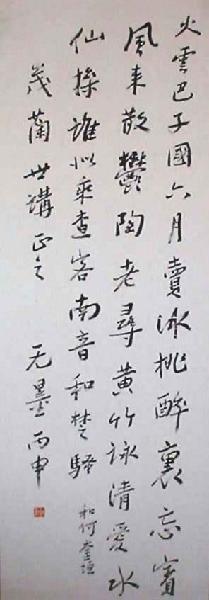 火雲巴子國六月賣冰桃醉裏忘賓
風來散鬱陶老尋黃竹詠清愛水
仙操誰似乘查客南音和楚騷 和何奎垣
茂蘭世講正之
无量 丙申